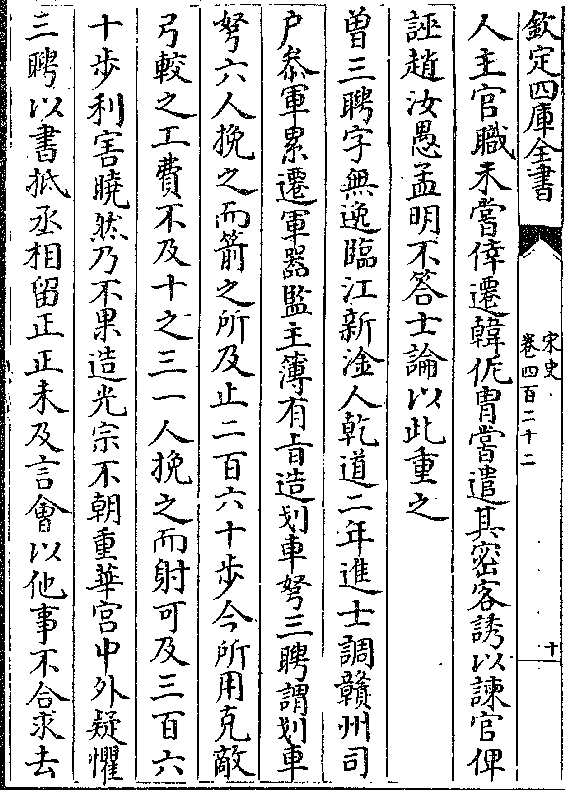 欽定四庫全書
宋史
卷四百二十二
十
人主官職未嘗倖遷韓侂冑嘗遣其密客誘以諫官俾
誣趙汝愚孟明不答士論以此重之
曾三聘字無逸臨江新淦人乾道二年進士調贛州司
户叅軍累遷軍器監主簿有㫖造划車弩三聘謂划車
弩六人挽之而箭之所及止二百六十歩今所用克敵
弓較之工費不及十之三一人挽之而射可及三百六
十歩利害曉然乃不果造光宗不朝重華宫中外疑懼
三聘以書抵丞相留正正未及言㑹以他事不合求去